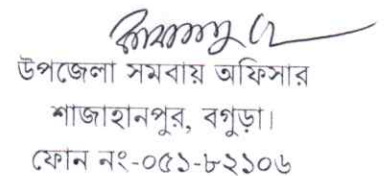 উপজেলা সমবায় অফিসার
শাজাহানপুর, বগুড়া।
ফোন নং-০৫১-৮২১০৬